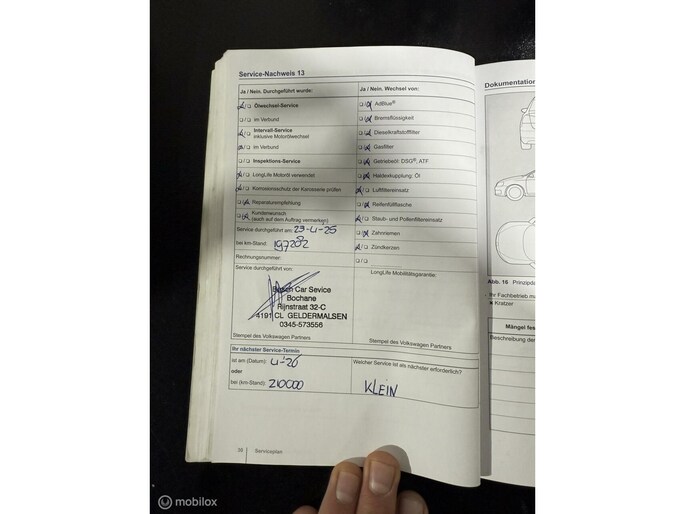 Service-Nachweis 13
Ja / Nein. Durchgeführt wurde:
Ölwechsel-Service
im Verbund
Intervall-Service
inklusive Motorölwechsel
im Verbund
Inspektions-Service
LongLife Motoröl verwendet
Korrosionsschutz der Karosserie prüfen
Reparaturempfehlung
Kundenwunsch
(auch auf dem Auftrag vermerken)
Service durchgeführt am: 23-4-25
bei km-Stand: 197282
Rechnungsnummer:
Service durchgeführt von:
Bosch Car Sevice
Bochane
Rijnstraat 32-C
4191 CL GELDERMALSEN
0345-573556
Stempel des Volkswagen Partners
Ja / Nein. Wechsel von:
AdBlue®
Bremsflüssigkeit
Dieselkraftstofffilter
Gasfilter
Getriebeöl: DSG®, ATF
Haldexkupplung: Öl
Luftfiltereinsatz
Reifenfüllflasche
Staub- und Pollenfiltereinsatz
Zahnriemen
Zündkerzen
LongLife Mobilitätsgarantie:
Stempel des Volkswagen Partners
Ihr nächster Service-Termin:
ist am (Datum): 4-26
oder
bei (km-Stand): 210000
Welcher Service ist als nächster erforderlich?
KLEIN
38 Serviceplan
Dokumentation
Abb. 18 Prinzipda
Ihr Fachbetrieb ma
Kratzer
Mängel fes
Beschreibung der
mobilox